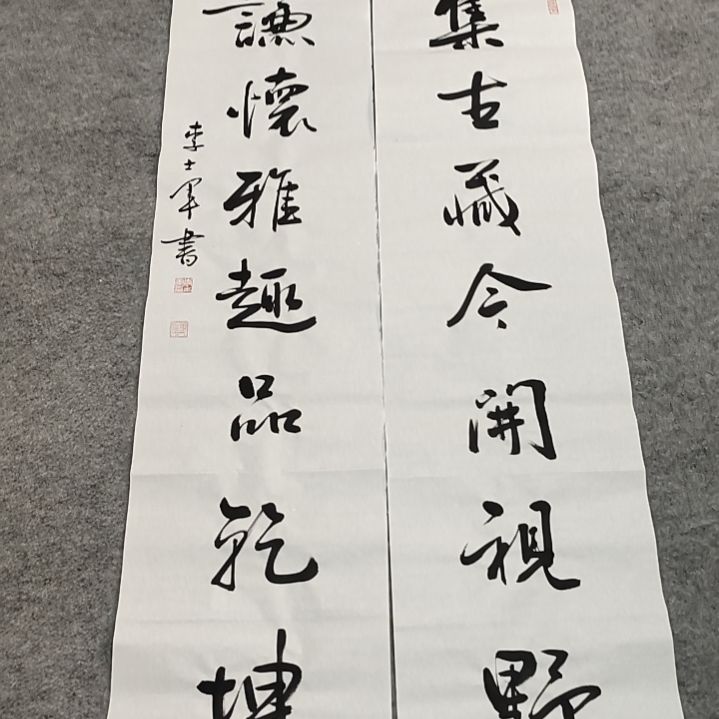 集古藏今開視野
謙懷雅趣品乾坤
李士軍書